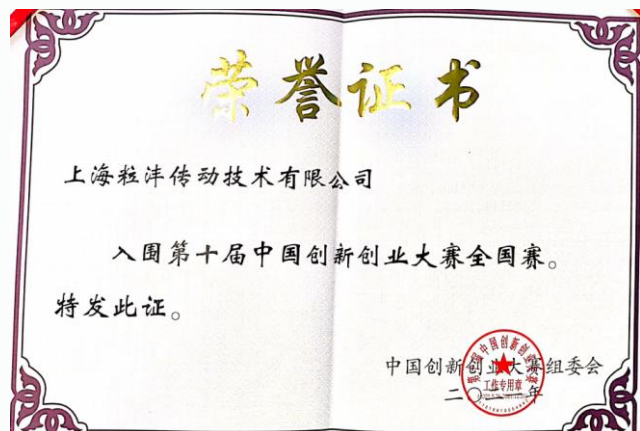 荣誉证书
上海粒沣传动技术有限公司
入围第十届中国创新创业大赛全国赛。
特发此证。
中国创新创业大赛组委会
二〇二 年
工作专用章